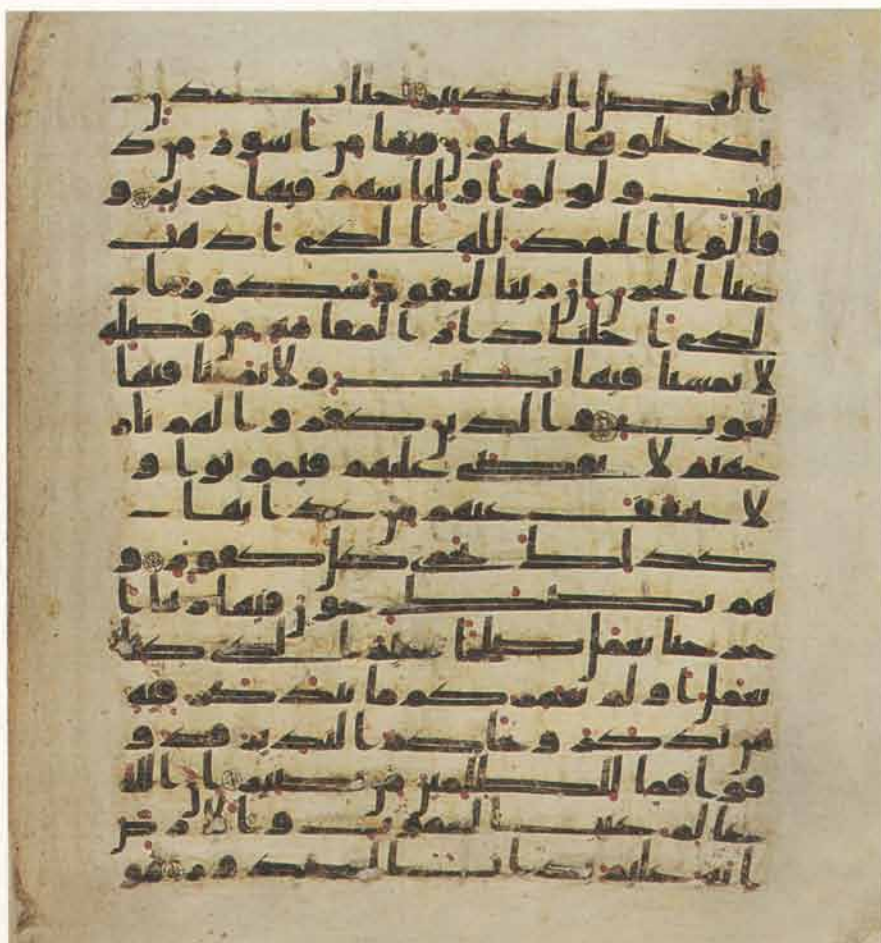 الفضل الكبير جنات عدن
يدخلونها يحلون فيها من اسور من ذ
هب ولولوا ولباسهم فيها حرير و
قالوا الحمد لله الذي اذهب
عنا الحزن ان ربنا لغفور شكور ا
لذي احلنا دار المقامة من فضله
لا يمسنا فيها نصب ولا يمسنا فيها
لغوب والذين كفروا لهم نار
جهنم لا يقضى عليهم فيموتوا و
لا يخفف عنهم من عذابها
كذلك نجزي كل كفور و
هم يصطرخون فيها ربنا ا
خرجنا نعمل صلحا غير الذي كنا
نعمل اولم نعمركم ما يتذكر فيه
من تذكر وجاكم النذير فذو
قوا فما للظلمين من نصير ان الله
عالم غيب السموت والارض
انه عليم بذات الصدور هو